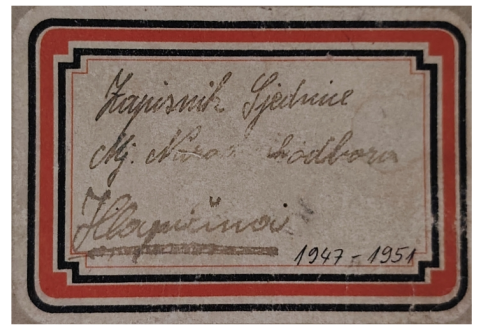 Zapisnik Sjednice
Mj. Odbora
Hlapičina
1947-1951